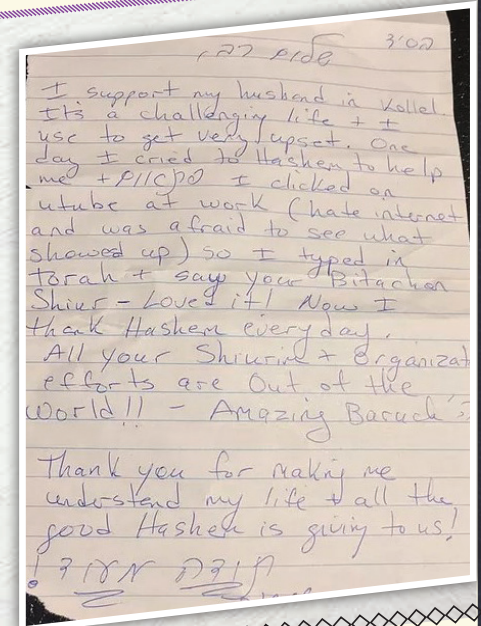 בס"ד
שלום רב,
I support my husband in Kollel.
It's a challenging life + I
use to get very upset. One
day I cried to Hashem to help
me + פתאום I clicked on
utube at work (hate internet
and was afraid to see what
showed up) so I typed in
Torah + saw your Bitachon
Shiur - Loved it! Now I
thank Hashem everyday.
All your Shiurim + Organizat
efforts are Out of the
World!! - Amazing Baruch ה
Thank you for making me
understand my life + all the
good Hashem is giving to us!
תודה מאוד!